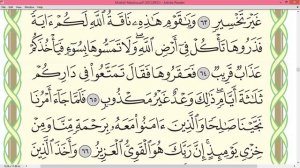 غَيْرَ تَخْسِيرٍ ٦٣ وَيَٰقَوْمِ هَٰذِهِۦ نَاقَةُ ٱللَّهِ لَكُمْ ءَايَةً
فَذَرُوهَا تَأْكُلْ فِىٓ أَرْضِ ٱللَّهِ وَلَا تَمَسُّوهَا بِسُوٓءٍ فَيَأْخُذَكُمْ
عَذَابٌ قَرِيبٌ ٦٤ فَعَقَرُوهَا فَقَالَ تَمَتَّعُوا۟ فِى دَارِكُمْ
ثَلَٰثَةَ أَيَّامٍ ذَٰلِكَ وَعْدٌ غَيْرُ مَكْذُوبٍ ٦٥ فَلَمَّا جَآءَ أَمْرُنَا
نَجَّيْنَا صَٰلِحًا وَٱلَّذِينَ ءَامَنُوا۟ مَعَهُۥ بِرَحْمَةٍ مِّنَّا وَمِنْ
خِزْىِ يَوْمِئِذٍ إِنَّ رَبَّكَ هُوَ ٱلْقَوِىُّ ٱلْعَزِيزُ ٦٦ وَأَخَذَ ٱلَّذِينَ